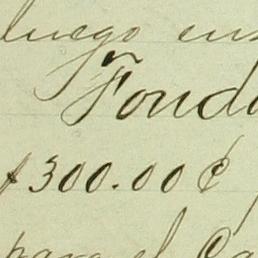 luego
Fond
$300.00 ¢
para el Ca